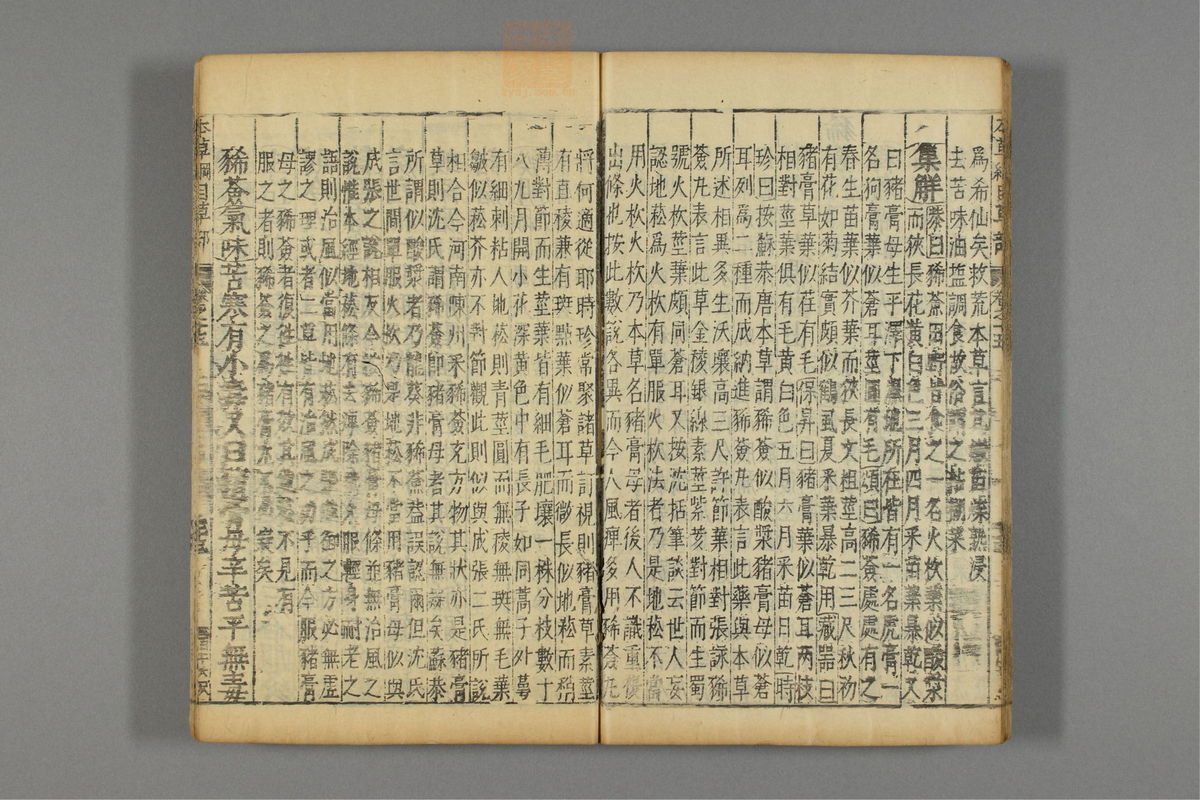 為希仙矣救荒本草言其嫩苗煠熟浸
去苦味油塩調食故俗謂之粘糊菜
集解恭曰豨薟田野皆有之一名火枚葉似酸漿
而狹長花黃白色三月四月采苗葉暴乾又
曰豬膏母生平澤下濕地所在皆有一名虎膏一
名狗膏葉似蒼耳莖圓有毛頌曰豨薟處處有之
春生苗葉似芥葉而狹長文粗莖高二三尺秋初
有花如菊結實頗似鶴虱夏采葉暴乾用藏器曰
豬膏草葉似荏有毛保昇曰豬膏葉似蒼耳兩枝
相對莖葉俱有毛黃白色五月六月采苗日乾時
珍曰按蘇恭唐本草謂豨薟似酸漿豬膏母似蒼
耳列為二種而成訥進豨薟丸表言此藥與本草
所述相異多生沃壤高三尺許節葉相對張詠豨
薟丸表言此草金稜銀線素莖紫荄對節而生蜀
號火枚莖葉頗同蒼耳又按沈括筆談云世人妄
認地菘為火枚有單服火枚法者乃是地菘不當
用火枚火枚乃本草名豬膏母者後人不識重復
出條也按此數說各異而今人風痺多用豨薟丸
將何適從耶時珍常聚諸草訂視則豬膏草素莖
有直稜兼有斑點葉似蒼耳而微長似地菘而稍
薄對節而生莖葉皆有細毛肥壤一株分枝數十
八九月開小花深黃色中有長子如同蒿子外萼
有細刺粘人地菘則青莖圓而無稜無斑無毛葉
皺似菘芥亦不對節觀此則似與成張二氏所說
相合今河南陳州采豨薟充方物其狀亦是豬膏
草則沈氏謂豨薟即豬膏母者其說無疑矣蘇恭
所謂似酸漿者乃龍葵非豨薟蓋誤認爾但沈氏
言世間單服火枚乃是地菘不當用豬膏母似與
成張之說相反今於豨薟豬膏母條並無治風之
說惟本經地菘條有去痺除熱久服輕身耐老之
語則治風似當用地菘然成張進御之方必無虛
謬之理或者二草皆有治風之功乎而今服豬膏
母之豨薟者復往往有效其地菘不見有
服之者則豨薟之為豬膏尤不必疑矣
豨薟氣味苦寒有小毒又曰豬膏母辛苦平無毒